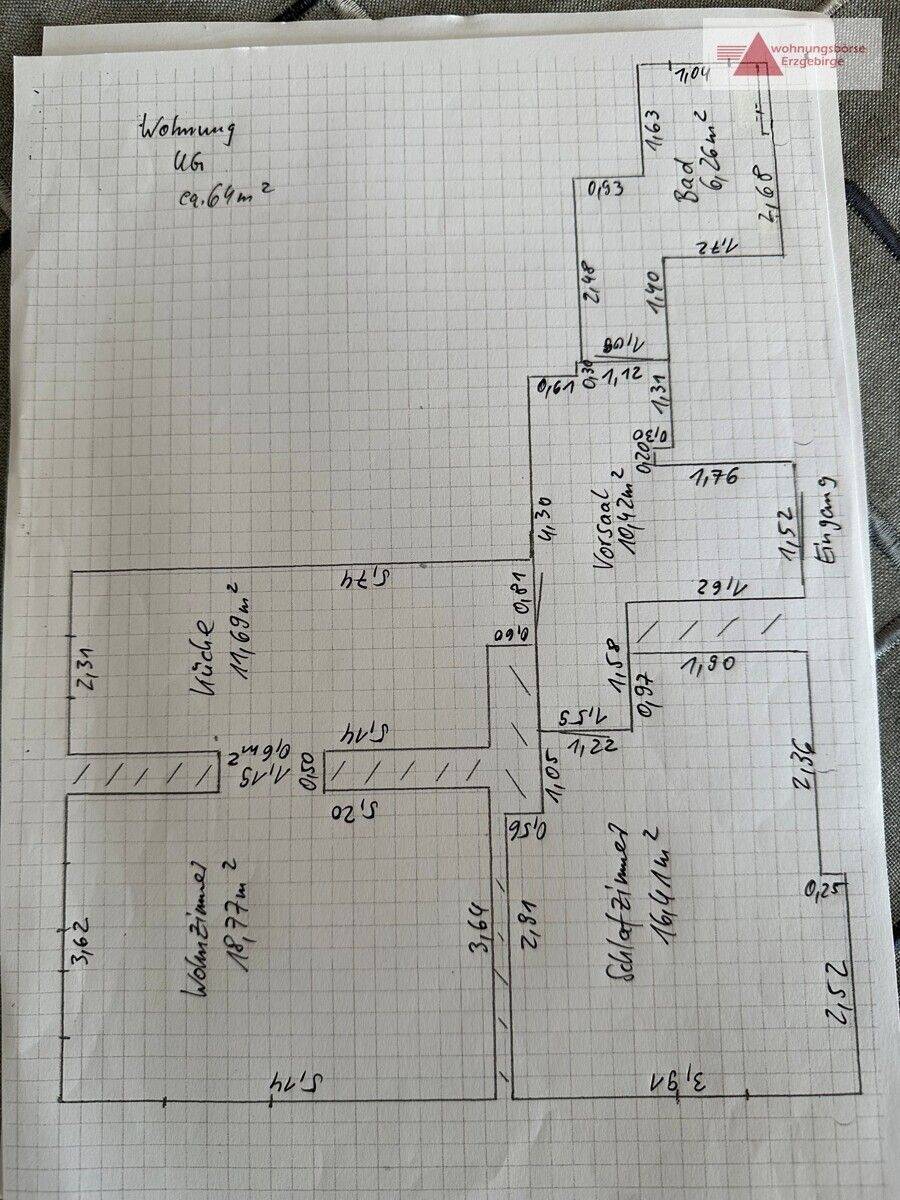 wohnungsbörse
Erzgebirge
Wohnung
UG
ca. 64 m²
1,04
1,63
Bad
6,26 m²
2,68
0,93
1,72
2,48
1,40
1,08
0,30
1,12
0,61
1,31
0,30
0,20
1,76
4,30
Vorsaal
10,42 m²
1,52
Eingang
5,74
0,81
1,62
Küche
11,69 m²
2,31
0,60
1,58
0,97
1,90
5,14
1,55
1,22
0,6 m²
1,15
0,50
5,20
1,05
2,36
0,56
Wohnzimmer
18,77 m²
3,62
3,64
2,91
Schlafzimmer
16,41 m²
0,25
2,52
5,14
3,91